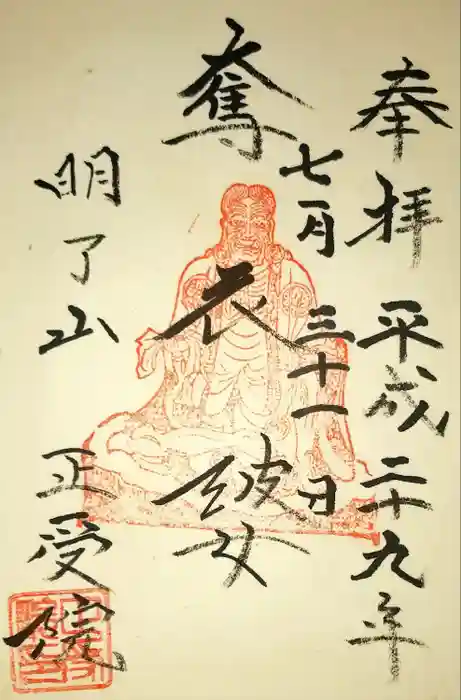 奉拝 平成二十九年
七月三十一日
奪衣婆
明了山
正受院